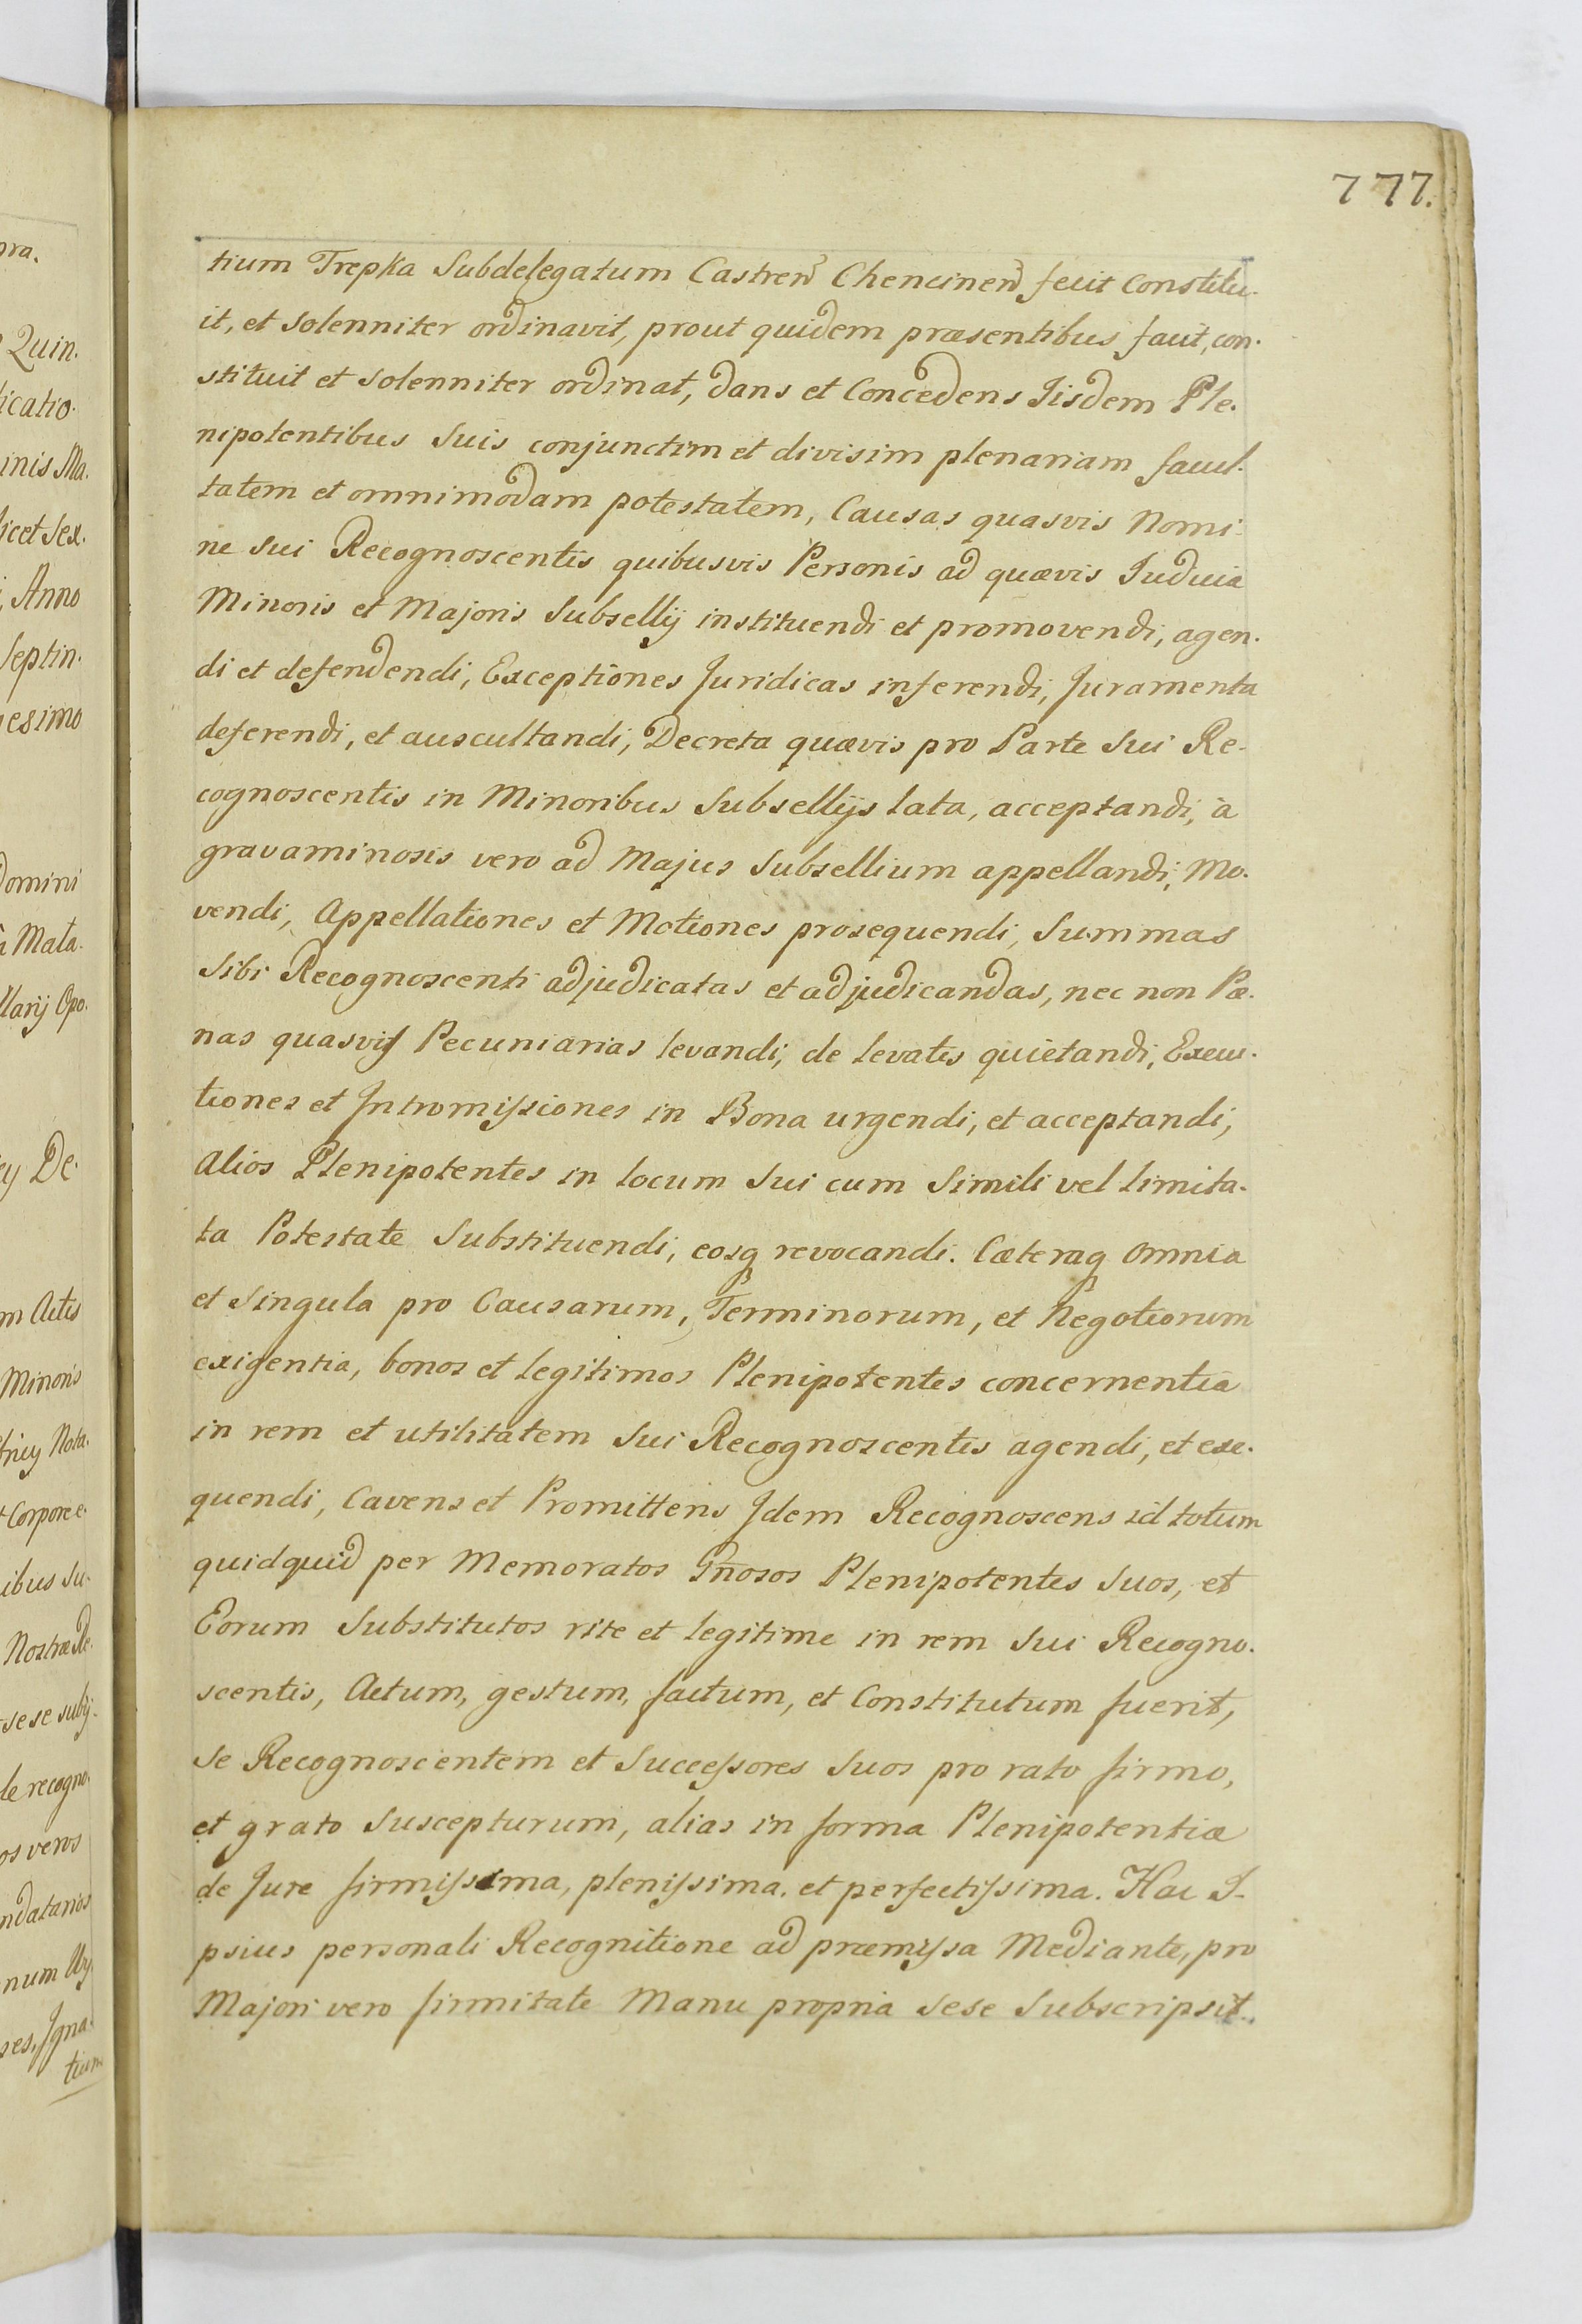 777.
tium Trepka Subdelegatum Castren Chencinen fecit Constitu-
it, et solenniter ordinavit, prout quidem præsentibus facit, con-
stituit et solenniter ordinat, dans et Concedens Iisdem Ple-
nipotentibus Suis conjunctim et divisim plenariam facul-
tatem et omnimodam potestatem, Causas quasvis Nomi-
ne sui Recognoscentis quibusvis Personis ad quævis Iudicia
Minoris et Majoris Subsellij instituendi et promovendi, agen-
di et defendendi, Exceptiones Juridicas inferendi, Juramenta
deferendi, et auscultandi, Decreta quævis pro Parte Sui Re-
cognoscentis in Minoribus Subsellijs lata, acceptandi, à
gravaminosis vero ad Majus Subsellium appellandi, Mo-
vendi, Appellationes et Motiones prosequendi, Summas
Sibi Recognoscenti adjudicatas et adjudicandas, nec non Pæ-
nas quasvis Pecuniarias levandi, de levatis quietandi, Execu-
tiones et Intromissiones in Bona urgendi, et acceptandi,
Alios Plenipotentes in locum Sui cum Simili vel limita-
ta Potestate Substituendi, eosq revocandi. Cæteraq Omnia
et Singula pro Causarum, Terminorum, et Negotiorum
exigentia, bonos et legitimos Plenipotentes concernentia
in rem et utilitatem Sui Recognoscentis agendi, et exe-
quendi, Cavens et Promittens Idem Recognoscens id totum
quidquid per Memoratos Gnosos Plenipotentes Suos, et
Eorum Substitutos rite et legitime in rem Sui Recogno-
scentis, Actum, gestum, factum, et Constitutum fuerit,
Se Recognoscentem et Successores Suos pro rato firmo,
et grato Suscepturum, alias in forma Plenipotentiæ
de Jure firmissima, plenissima, et perfectissima. Hac I-
psius personali Recognitione ad præmissa Mediante, pro
Majori vero firmitate Manu propria sese Subscripsit.